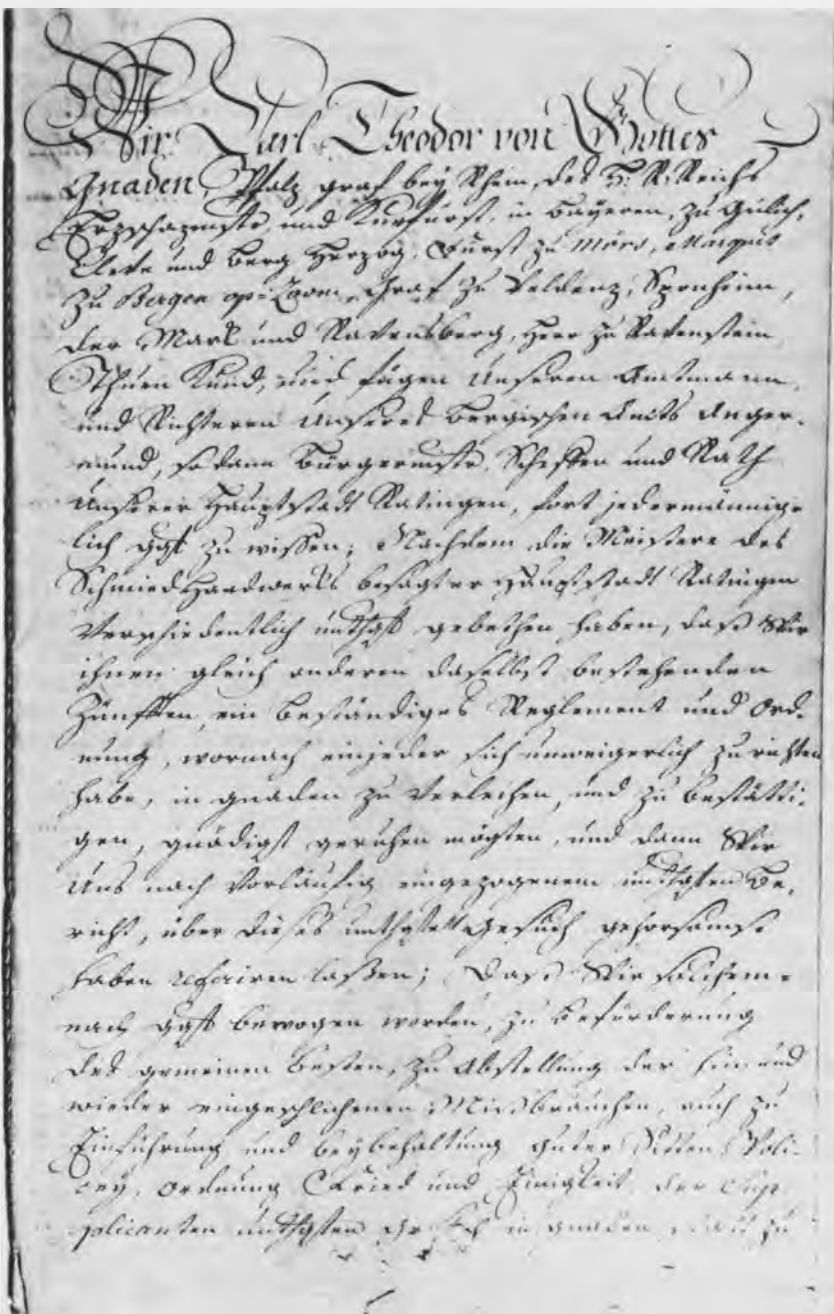 Wir Carl Theodor von Gottes
Gnaden, Pfalz graf bey Rhein, des H: R: Reichs
Erzschazmstr, und Kurfürst, in Bayeren, zu Gülich,
Cleve und Berg Herzog, Fürst zu Mörs, Marquis
zu Bergen op-Zoom, Graf zu Veldenz, Sponheim,
der Marck und Ravensberg, Herr zu Ravenstein
Thuen Kund, und fügen Unseren Amtmann,
und Richteren Unseres Bergischen Amts Anger-
mund, so dann Bürgermstr, Scheffen und Rath
Unserer Hauptstadt Ratingen, fort jedermännig-
lich ggst zu wissen; Nachdem die Meistere des
Schmied Handwercks besagter Hauptstadt Ratingen
Verschiedentlich unthgst gebethen haben, daß Wir
ihnen gleich anderen daselbst bestehenden
Zünfften, ein beständiges Reglement und Ord-
nung, wornach ein jeder sich unweigerlich zu richten
habe, in gnaden zu verleihen, und zu bestätti-
gen, gnädigst geruhen mögten, und dann Wir
Uns nach vorläufig eingezogenem unthgsten Be-
richt, über dieses unthgste Gesuch gehorsamst
haben referiren laßen; Daß Wir solchem-
nach ggst bewogen worden, zu Beförderung
des gemeinen Besten, zu Abstellung der hin und
wieder eingeschlichenen Mißbräuchen, auch zu
Einführung und Beybehaltung guter Sitten, Poli-
cey, Ordnung, Fried und Einigkeit, der Sup-
plicanten unthgsten in gnaden zu